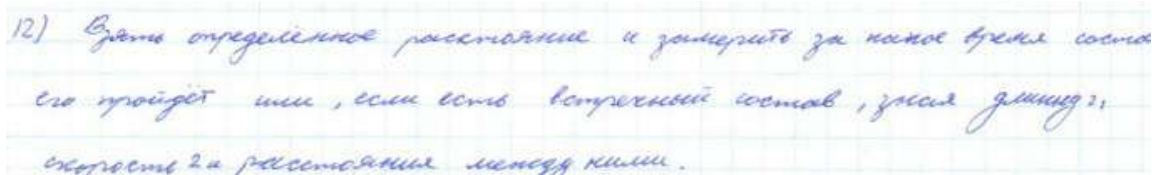 12) Взять определённое расстояние и замерить за какое время соста
его пройдёт или, если есть встречный состав, зная длинну 2,
скорость 2 и расстояния между ними.